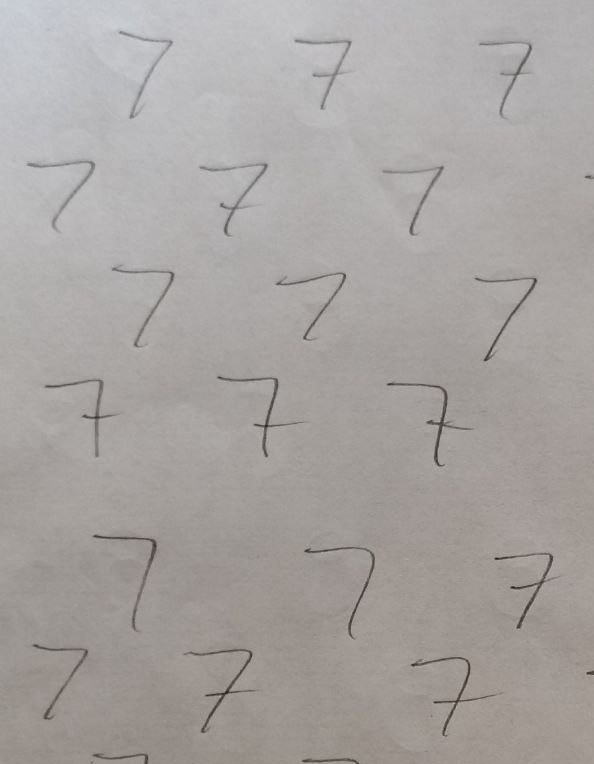 7 7 7
7 7 7
7 7 7
7 7 7
7 7 7
7 7 7